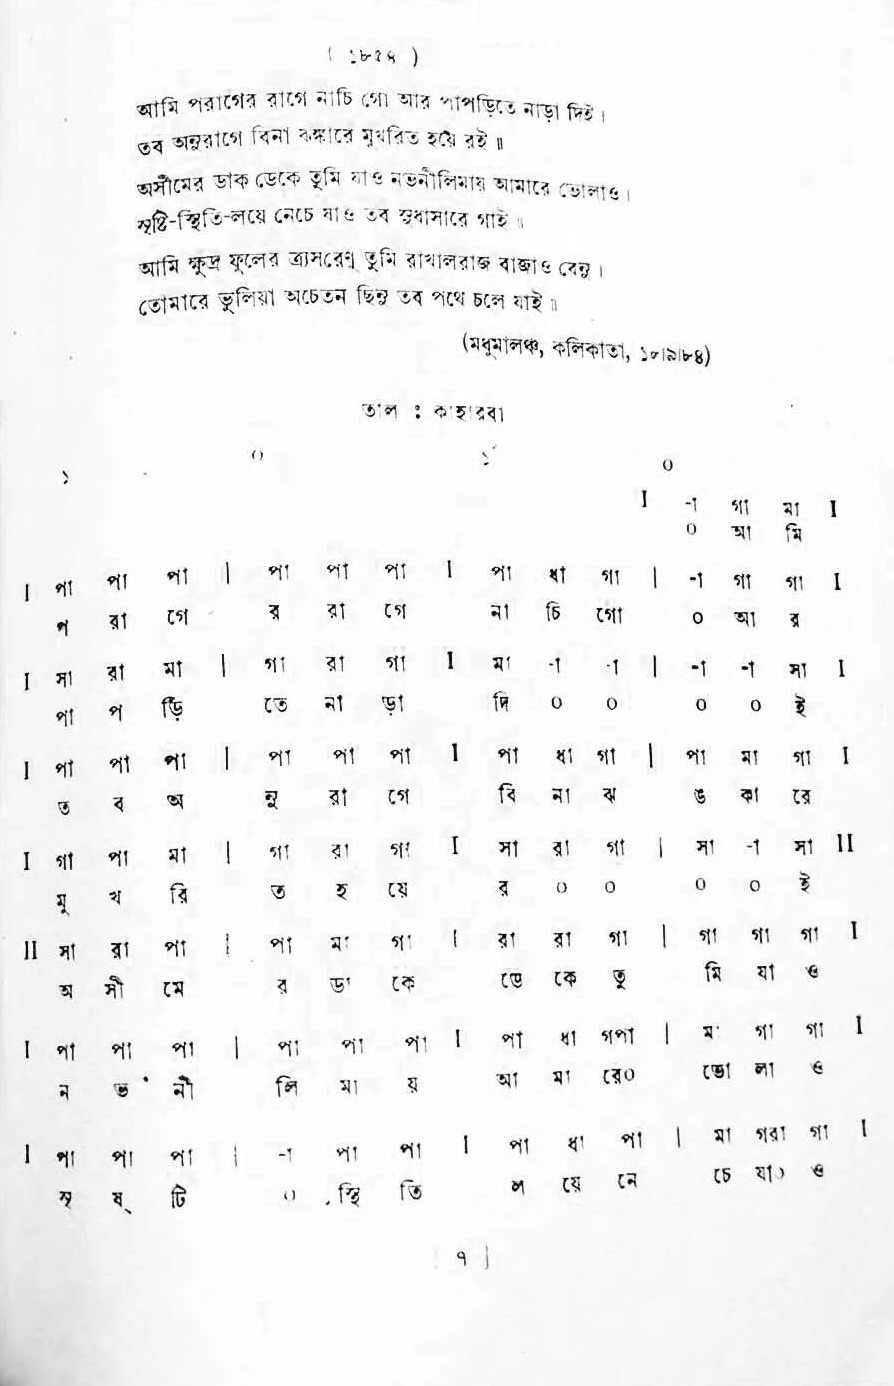 ( ১৮৫৭ )
আমি পরাগের রাগে নাচি গো আর পাপড়িতে নাড়া দিই।
তব অনুরাগে বিনা ঝঙ্কারে মুখরিত হয়ে রই॥
অসীমের ডাক ডেকে তুমি যাও নভনীলিমায় আমারে ভোলাও।
সৃষ্টি-স্থিতি-লয়ে নেচে যাও তব সুধাসারে গাই॥
আমি ক্ষুদ্র ফুলের ত্রাসরেণু তুমি রাখালরাজ বাজাও বেনু।
তোমারে ভুলিয়া অচেতন ছিনু তব পথে চলে যাই॥
(মধুমালঞ্চ, কলিকাতা, ১৮।৯।৮৪)
তাল : কাহারবা
১ ০ ১ ০
I -া গা মা I
০ আ মি
I পা পা পা | পা পা পা I পা ধা গা | -া গা গা I
প রা গে র রা গে না চি গো ০ আ র
I সা রা মা | গা রা গা I মা -া -া | -া -া সা I
পা প ড়ি তে না ড়া দি ০ ০ ০ ০ ই
I পা পা পা | পা পা পা I পা ধা গা | পা মা গা I
ত ব অ নু রা গে বি না ঝ ঙ কা রে
I গা পা মা | গা রা গা I সা রা গা | সা -া সা II
মু খ রি ত হ য়ে র ০ ০ ০ ০ ই
II সা রা পা | পা মা গা I রা রা গা | গা গা গা I
অ সী মে র ডা কে ডে কে তু মি যা ও
I পা পা পা | পা পা পা I পা ধা গপা | মা গা গা I
ন ভ নী লি মা য় আ মা রে০ ভো লা ও
I পা পা পা | -া পা পা I পা ধা পা | মা গরা গা I
সৃ ষ্ টি ০ স্থি তি ল য়ে নে চে যা০ ও
৭